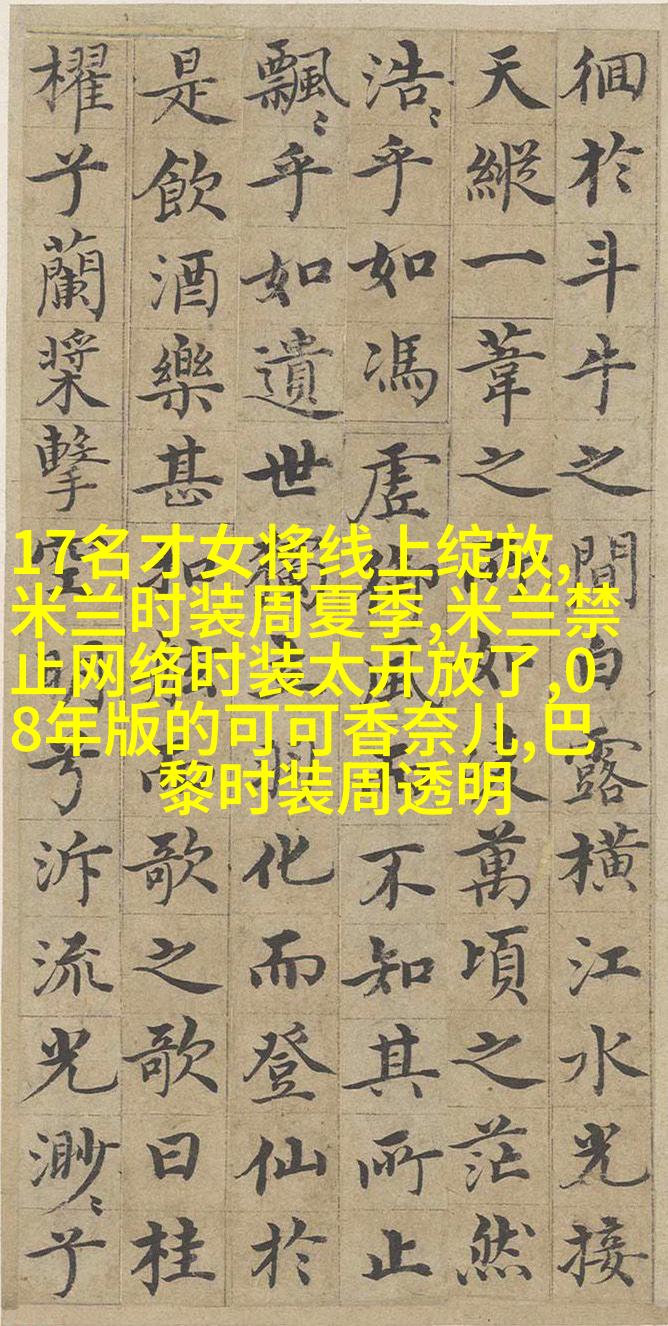 徊於斗牛之間白露橫江水光接
天縱一葦之所如凌萬頃之茫然
浩〻乎如馮虛御風而不知其所止
飄〻乎如遺世獨立羽化而登仙於
是飲酒樂甚扣舷而歌之歌曰桂
櫂兮蘭槳擊空明兮泝流光渺〻兮
17名才女将线上绽放,
米兰时装周夏季,米兰禁
止网络时装太开放了,0
8年版的可可香奈儿,巴
黎时装周透明